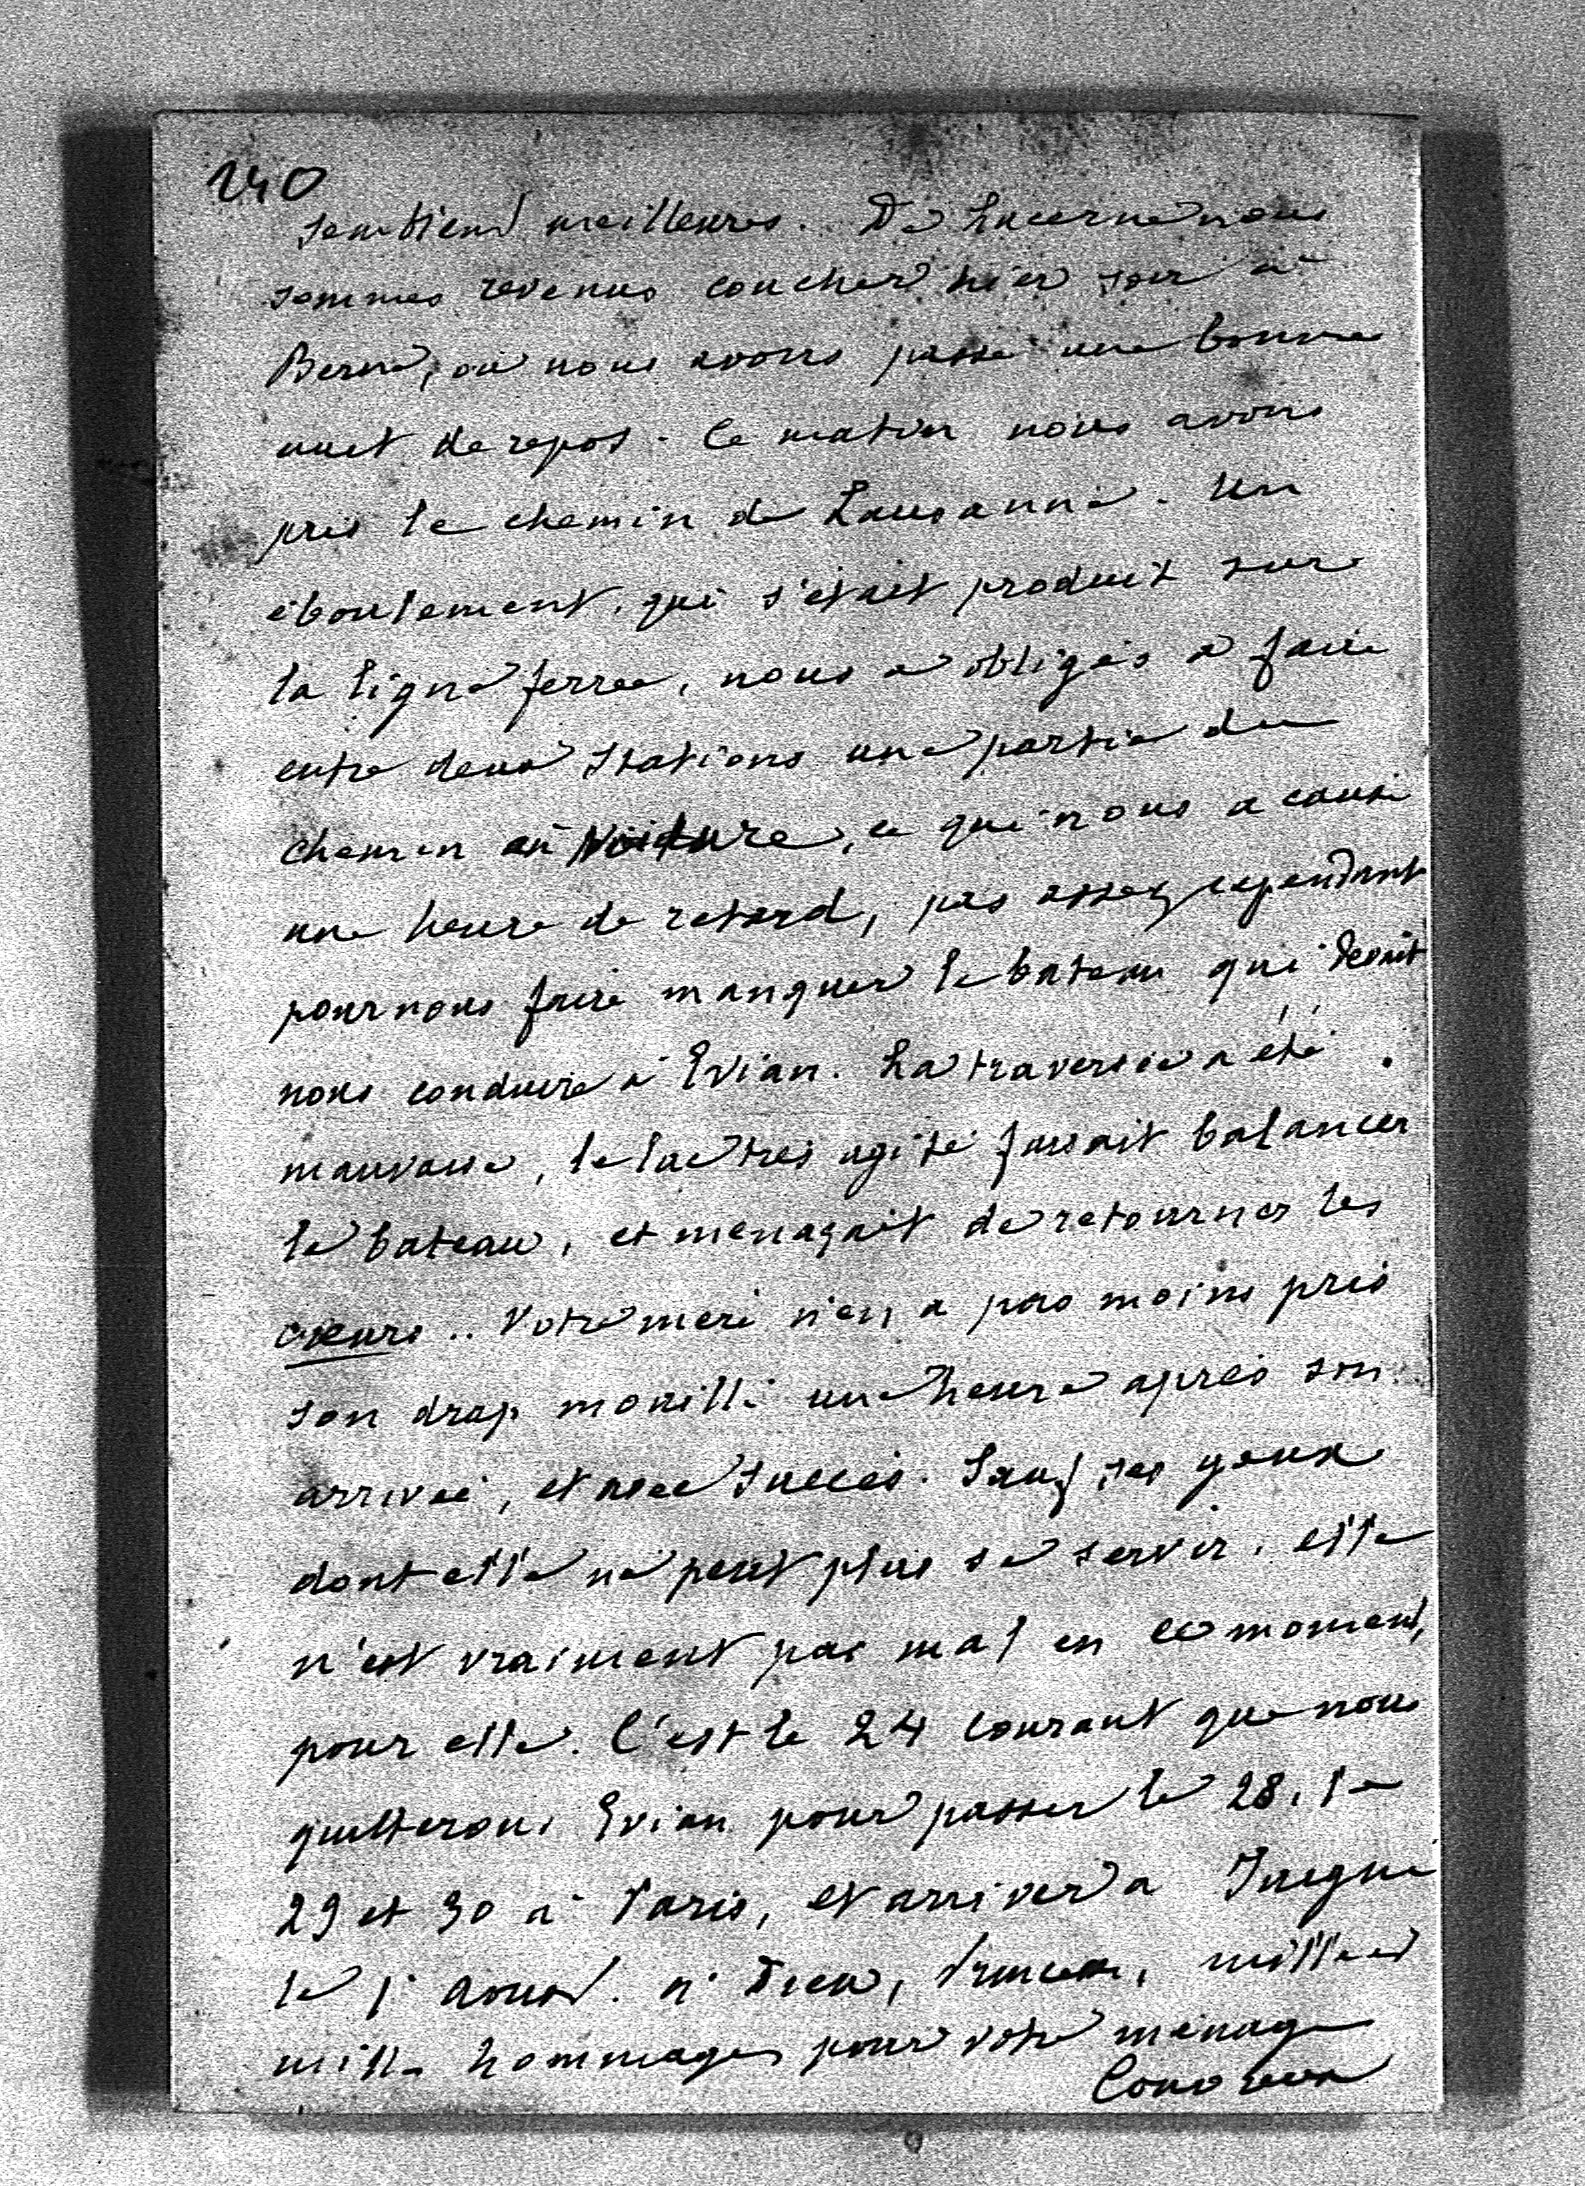 240
semblent meilleures. De Lucerne nous
sommes revenus coucher hier soir à
Berne, où nous avons passé une bonne
nuit de repos. Ce matin nous avons
pris le chemin de Lausanne. Un
éboulement, qui s'était produit sur
la ligne ferrée, nous a obligés à faire
entre deux stations une partie du
chemin en voiture, ce qui nous a causé
une heure de retard, pas assez cependant
pour nous faire manquer le bateau qui devait
nous conduire à Evian. La traversée a été
mauvaise, le lac très agité faisait balancer
le bateau, et menaçait de retourner les
cœurs .. Votre mère n'en a pas moins pris
son drap mouillé une heure après son
arrivée, et avec succès. Sauf ses yeux
dont elle ne peut plus se servir, elle
n'est vraiment pas mal en ce moment,
pour elle. C'est le 24 courant que nous
quitterons Evian pour passer le 28, le
29 et 30 à Paris, et arriver à
le 1 août. à Dieu, mille et
mille hommages pour votre ménage